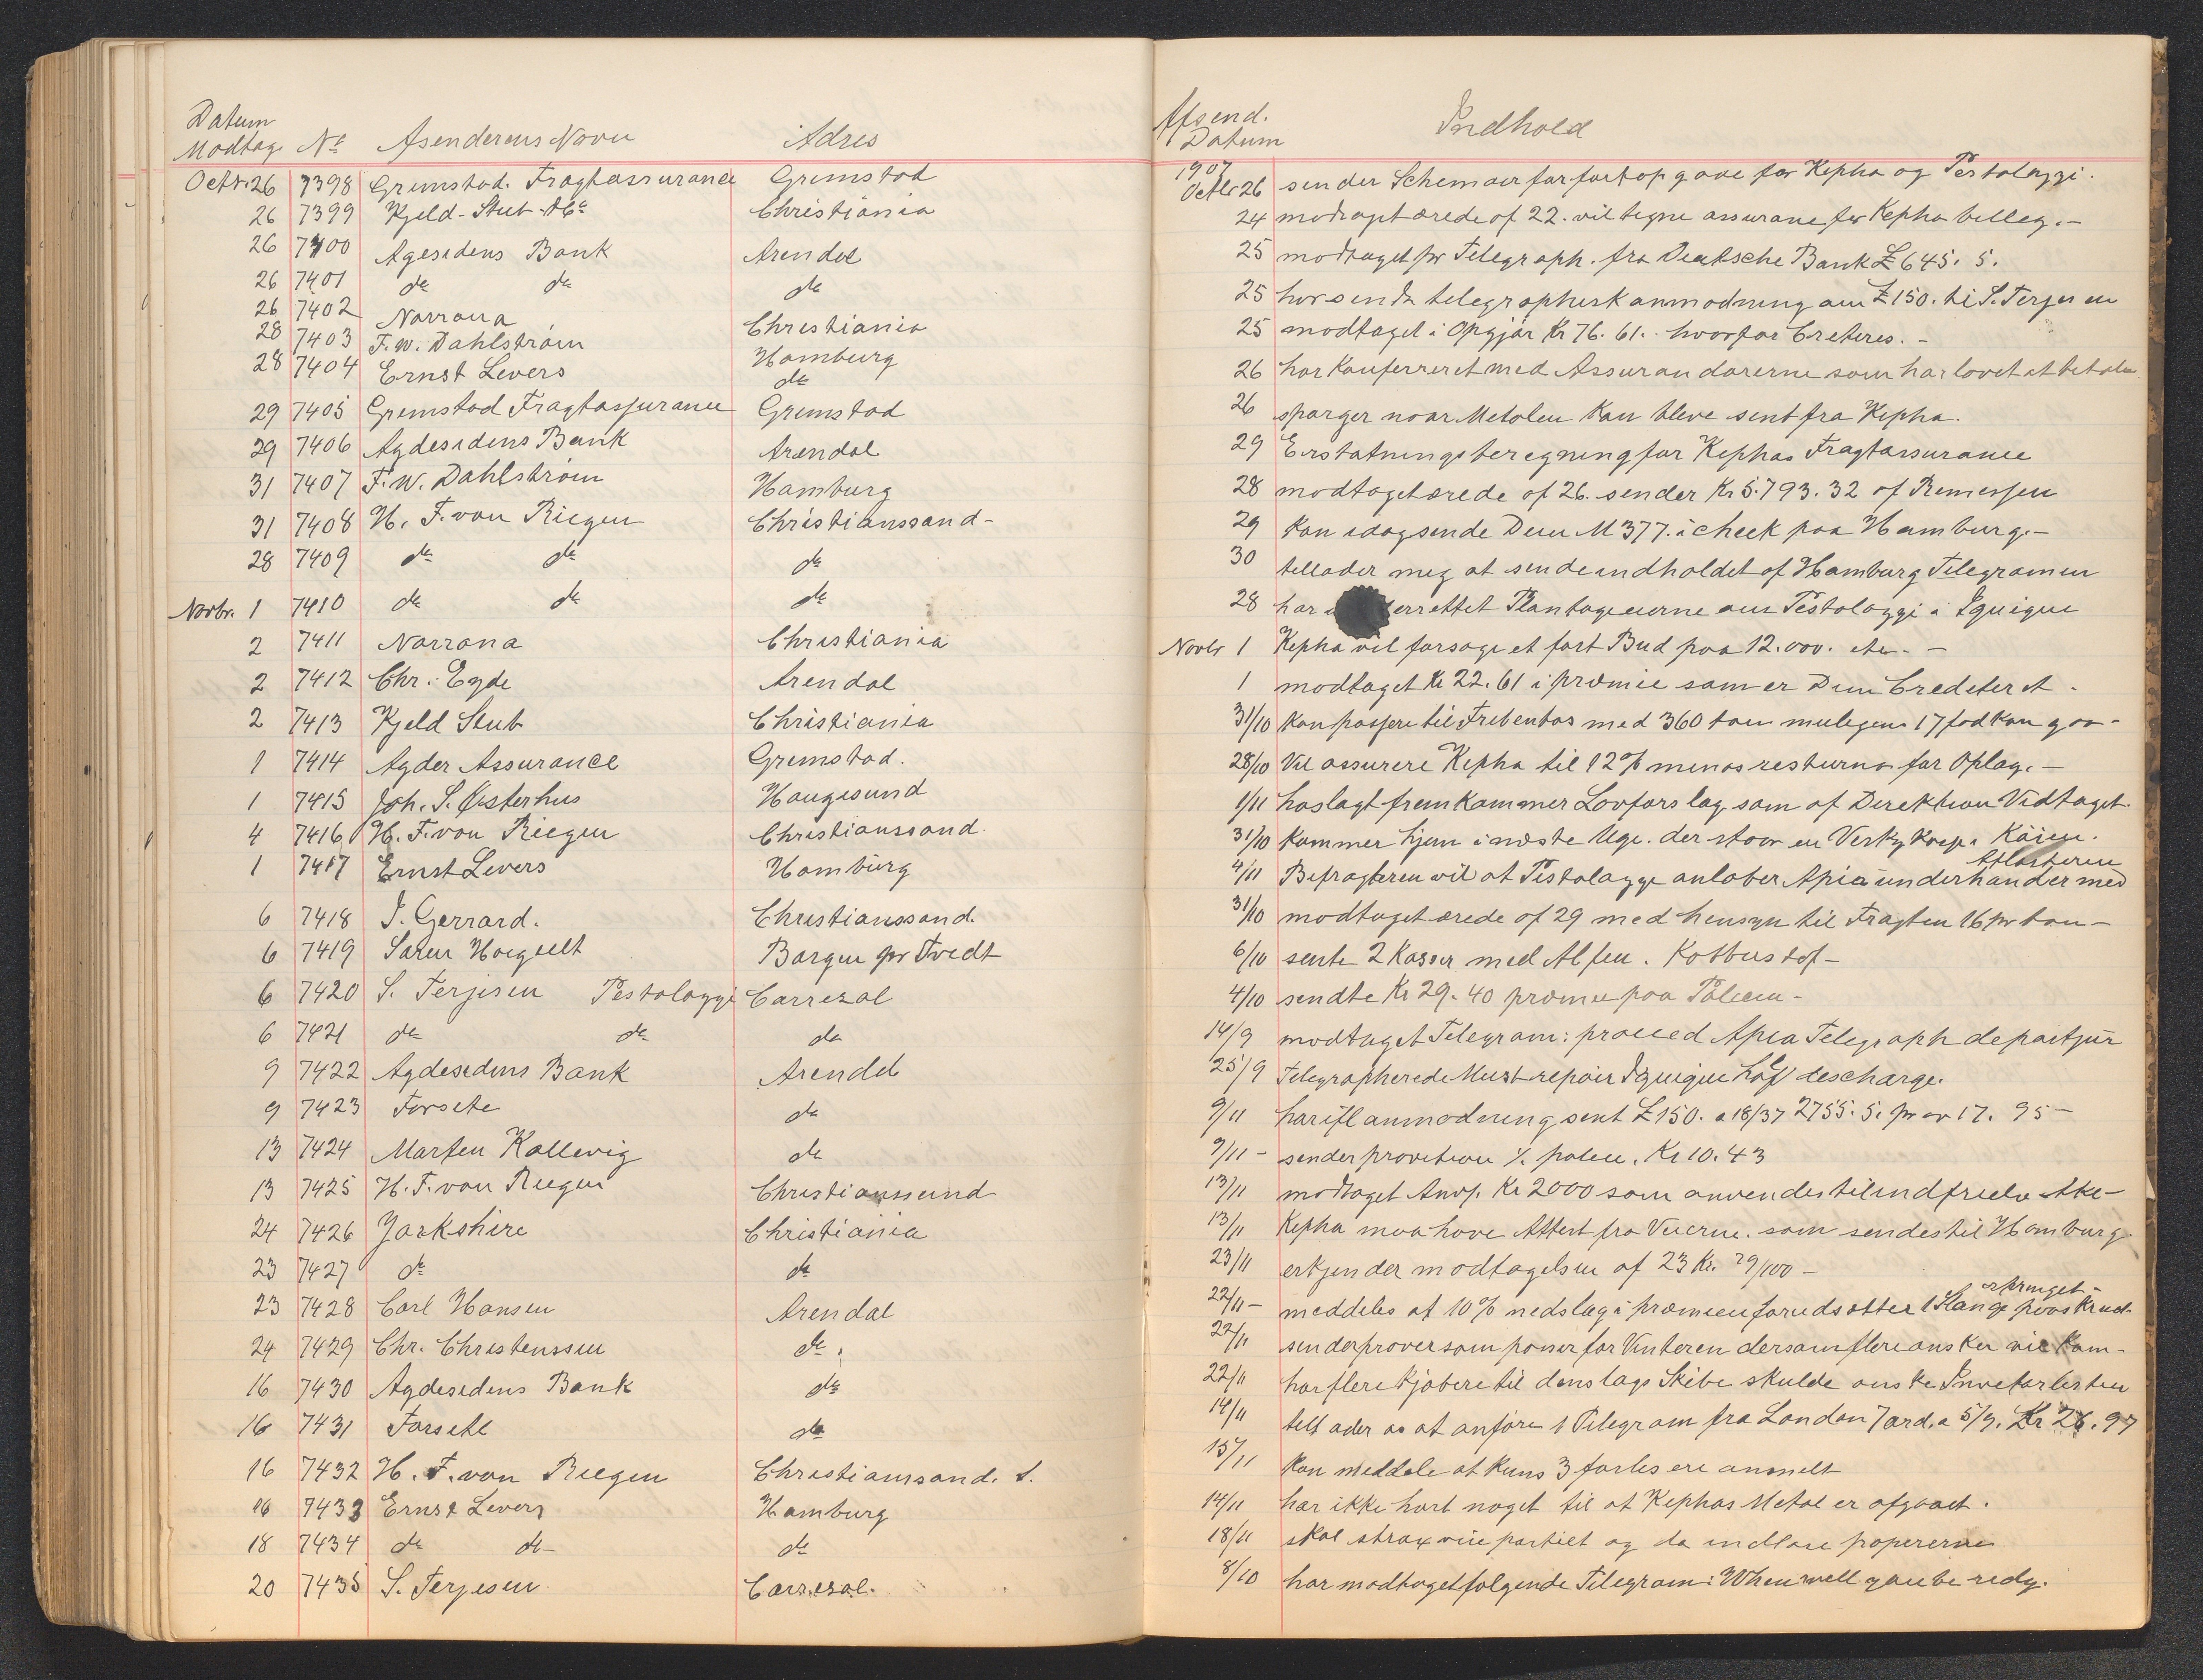 Datum
Modtag. No Asenderens Navn Adres
Octr. 26 7398 Grimstad. Fragtassurance Grimstad
26 7399 Kjeld-Stub & Co Christiania
26 7400 Agesidens Bank Arendal
26 7401 do do do
26 7402 Norrøna Christiania
28 7403 F. W. Dahlstrøm Hamburg
28 7404 Ernst Levers do
29 7405 Grimstad Fragtassurance Grimstad
29 7406 Agdesidens Bank Arendal
31 7407 F. W. Dahlstrøm Hamburg
31 7408 H. F. von Riegen Christianssand-
28 7409 do do do
Novbr. 1 7410 do do do
2 7411 Norrøna Christiania
2 7412 Chr. Eyde Arendal
2 7413 Kjeld Stub Christiania
1 7414 Agder Assurance Grimstad.
1 7415 Joh. S. Østerhus Haugesund
4 7416 H. F. von Riegen Christianssand.
1 7417 Ernst Levers Hamburg
6 7418 J. Gerrard. Christianssand.
6 7419 Søren Hørgselt Borgen pr Tvedt
6 7420 S. Terjesen Pestolozzi Carrezal
6 7421 do do do
9 7422 Agdesidens Bank Arendal
9 7423 Forsete do
13 7424 Morten Kallevig do
13 7425 H. F. von Riegen Christianssund
24 7426 Yorkshire Christiania
23 7427 do do
23 7428 Carl Hansen Arendal
24 7429 Chr. Christenssen do.
16 7430 Agdesidens Bank do
16 7431 Forsete do
16 7432 H. F. von Riegen Christiansand. S.
16 7433 Ernst Levers Hamburg
18 7434 do do- do
20 7435 S. Terjesen Carrezal.
Afsend.
Datum Indhold
1907
Octbr 26 sender Schemaer for fortopgave for Kepha og Pestolozzi.
24 modtaget ærede af 22. vil tegne assurane for Kepha billeg.-
25 modtaget pr Telegraph. fra Deutsche Bank £ 645. 5.
25 har sendt telegraphisk anmodning om £ 150. til S. Terjesen
25 modtaget i Opgjør Kr 76. 61. hvorfor Creteres.-
26 har Konferreret med Assurandørerne som har lovet at betale
26 spørger naar Metolen Kan bleve sent fra Kepha.
29 Erstatningsberegning for Kephas Fragtassurance
28 modtaget ærede af 26. sender Kr 5.793. 32 af Remessen
29 Kan idag sende Dem M 377. i check paa Hamburg.-
30 tellader meg at sende indholdet af Hamburg Telegramen
28 har errettet Plantageierne om Pestolozzi i Iquique
Novbr 1 Kepha vil forsøge et fast Bud paa 12.000. etc.-
1 modtaget Kr 22. 61 i præmie som er Dem Crediteret.
31/10 Kan passere til med 360 ton mulegens 17 fod Kan gaa-
28/10 Vil assurere Kepha til 12% minus resturno for Oplag.-
1/11 hoslagt fremkommer Lovforslag som af Direktion Vedtaget.
31/10 Kommer hjem i næste Uge. der staar en i Kaien.
4/11 Befragteren vil at Pestolozzi anløber Apia underhander med
31/10 modtaget ærede af 29 med hensyn til Fragten 16 pr ton-
6/10 sente 2 Kasser med
4/10 sendte Kr 29. 40 præmie paa Polisen-
14/9 modtaget Telegram: proceed Apia Telegraph departjür
25/9 Telegrapherede Must repair Iquique half descharge.
9/11 har ifl anmodning sent £ 150. a 18/37 2755. 5. 17. 95-
9/11- sender provition Kr 10. 43
13/11 modtaget Anvs. Kr 2000 som anvendes til indfrielse
13/11 Kepha maa have Attest fra som sendes til Hamburg.
23/11 erkjender modtagelsen af 23 Kr. 29/100-
22/11- meddeles at 10% nedslag i præmien forudsætter
22/11 sender prøver som passer for Vinteren dersom flere ønsker
22/11 har flere Kjøbere til denslags Skibe skulde ønske
14/11 tellader os at anføre 1 Telegram fra London 7 ord. a 5/9. Kr 26. 97
15/11 Kan meddele at Kuns 3 forlis ere anmelt
14/11 har ikke hørt noget til at Kephas Metal er afgaaet.
18/11 skal strax vise partiet og da indløse papererne
8/10 har modtaget følgende Telegram: When well